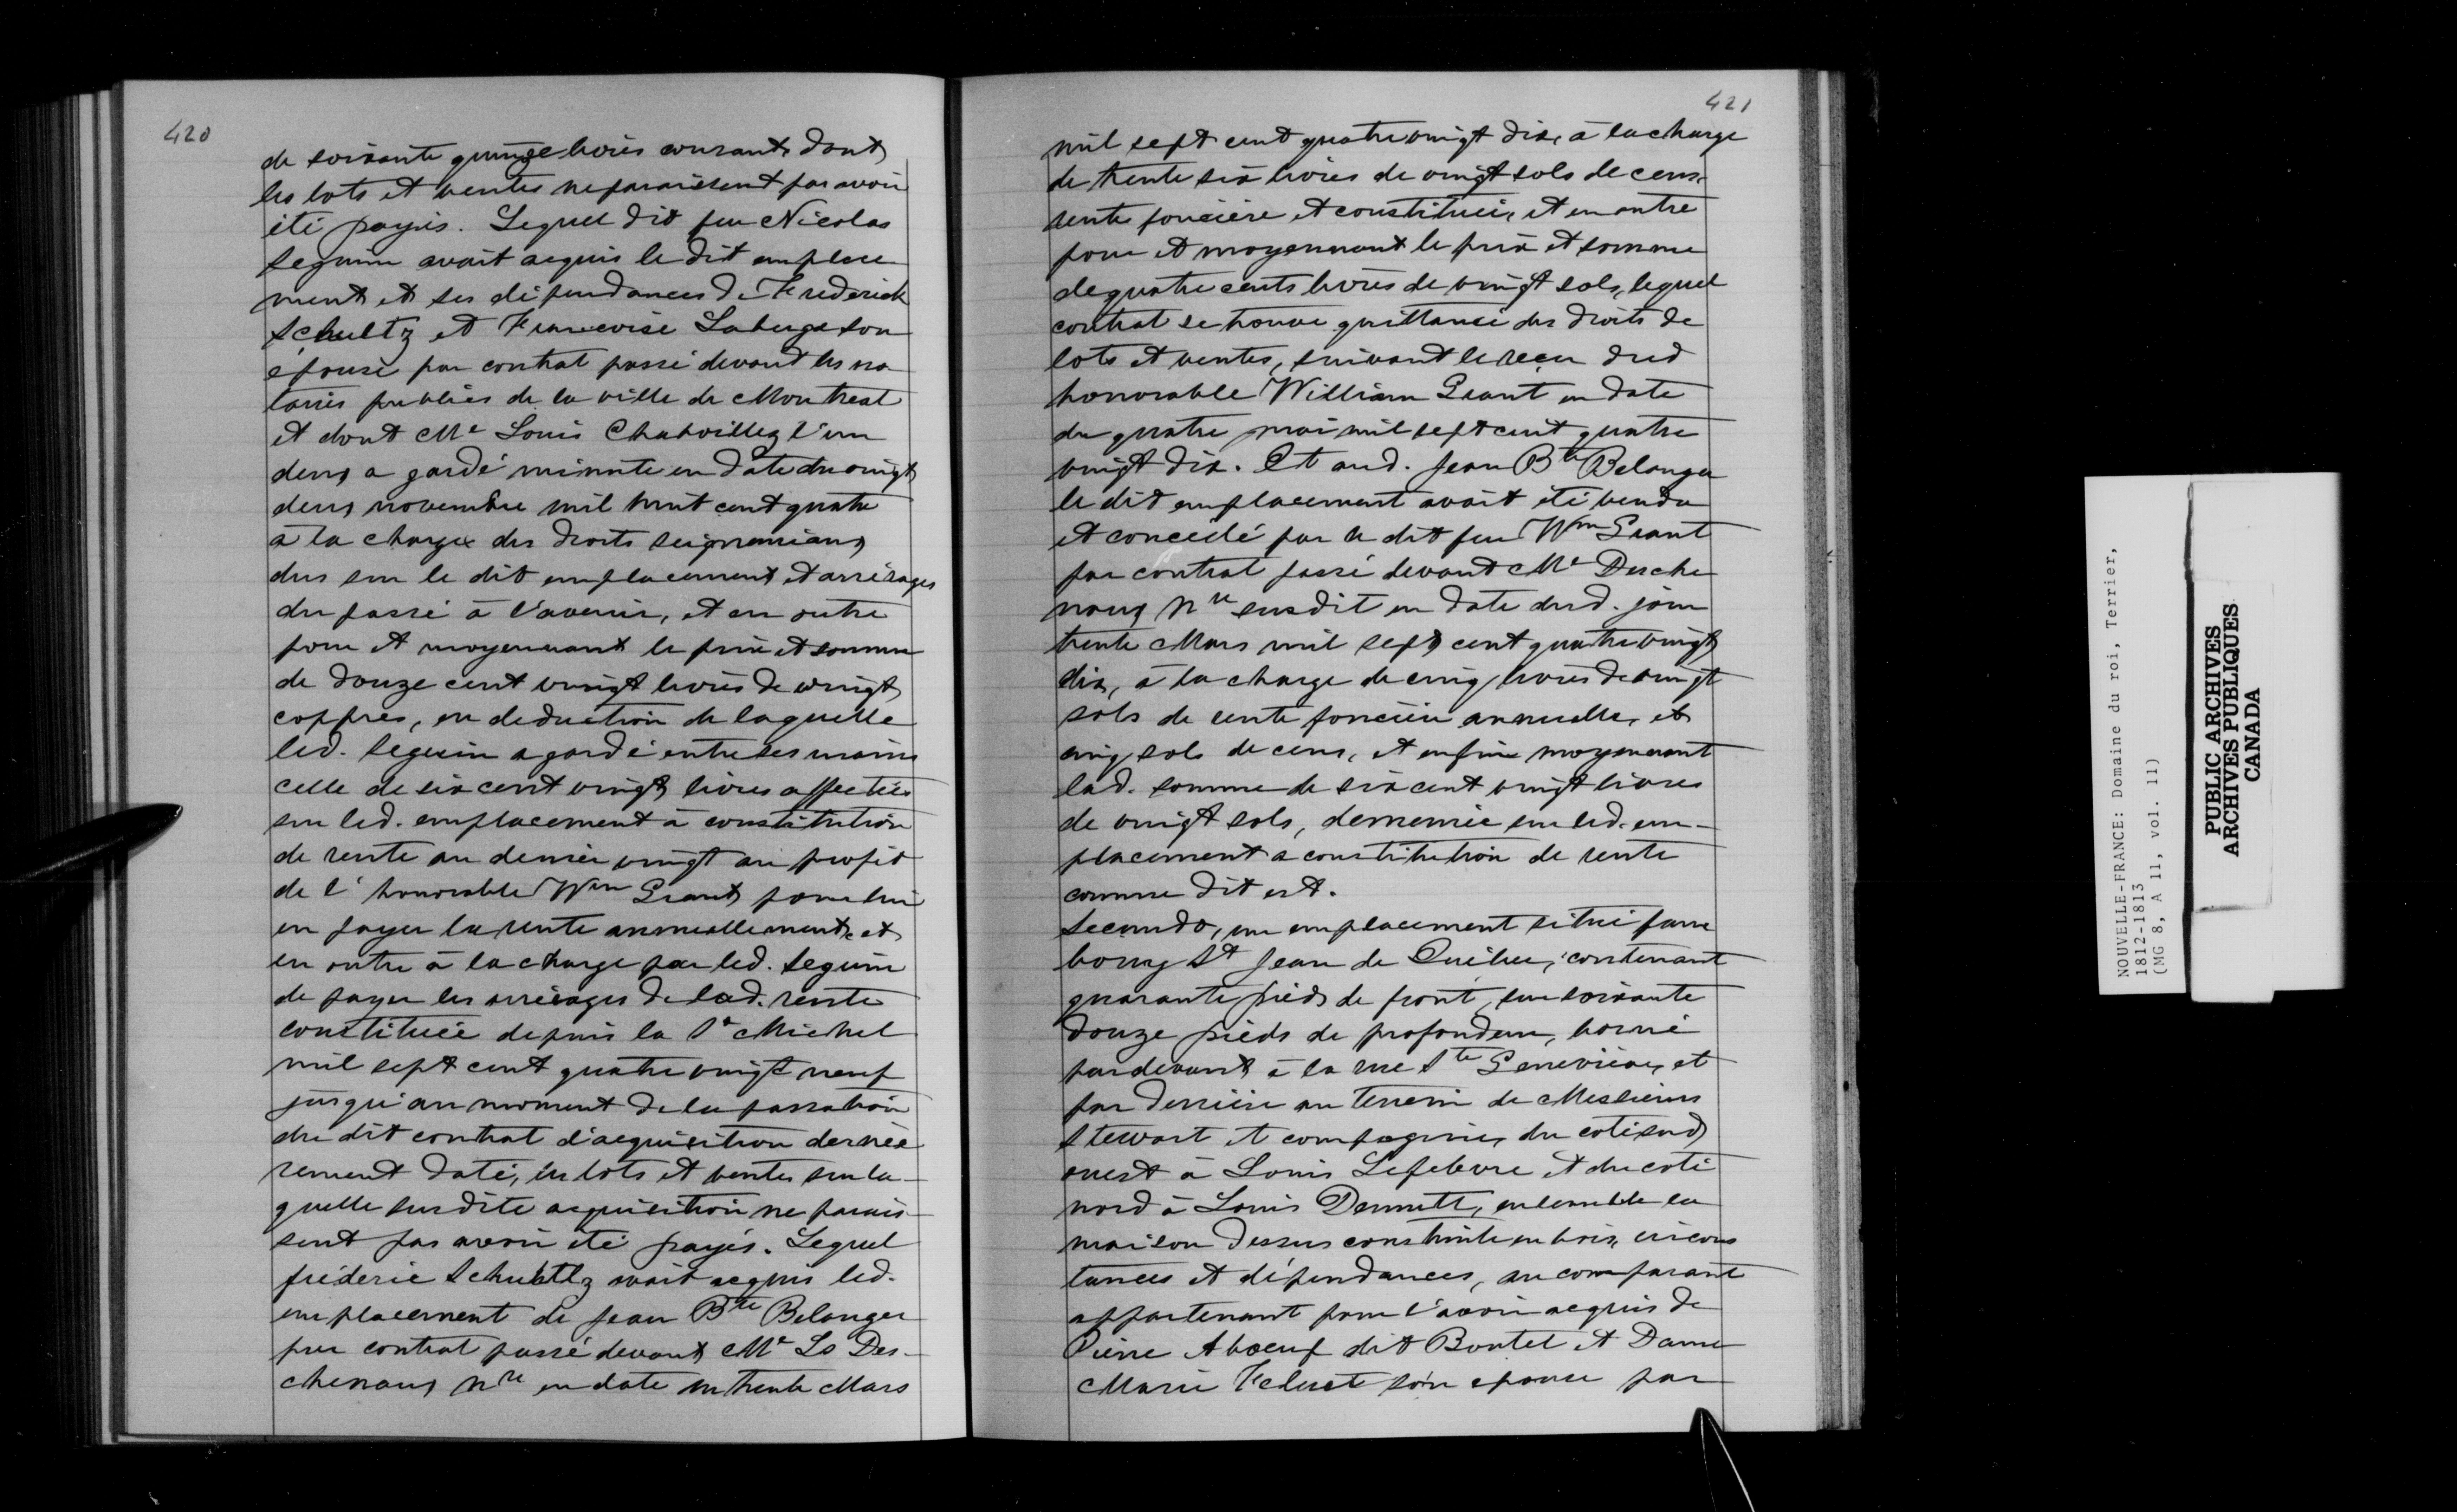 420
de soixante quinze livres courant, dont
les lots et ventes ne paraissent pas avoir
été payés. Lequel dit feu Nicolas
Seguin avait acquis le dit emplace
ment et ses dépendances de Frederick
Schultz et Francoise Laberge son
épouse par contrat passé devant les no
taires publics de la ville de Montreal
et dont Me Louis Chaboillez l'un
deux a gardé minute en date du vingt
deux novembre mil huit cent quatre
à la charge des droits seigneuriaux
dus sur le dit emplacement et arrérages
du passé à l'avenir, et en outre
pour et moyennant le prix et somme
de douze cent vingt livres de vingt
coppres, en deduction de laquelle
led. Seguin a gardé entre ses mains
celle de six cent vingt livres affectées
sur led. emplacement à constitution
de rente au denier vingt au profit
de l'honorable Wm Grant pour lui
en payer la rente annuellement, et
en outre à la charge par led. Seguin
de payer les arrérages de lad. rente
constituée depuis la St Michel
mil sept cent quatre vingt neuf
jusqu'au moment de la passation
du dit contrat d'acquisition derniè
rement daté, les lots et ventes sur la-
quelle susdite acquisition ne parais-
sent pas avoir été payés. Lequel
fréderic Schultz avait acquis led.
emplacement de Jean Bte Belanger
par contrat passé devant Me Ls Des-
chenaux nre en date du trente Mars
421
mil sept cent quatre vingt dix, à la charge
de trente six livres de vingt sols de cens,
rente foncière et constituée, et en outre
pour et moyennant le prix et somme
de quatre cents livres de vingt sols, lequel
contrat se trouve quittancé des droits de
lots et ventes, suivant le reçu dud
honorable William Grant en date
du quatre mai mil sept cent quatre
vingt dix. Et aud. Jean Bte Belanger
le dit emplacement avait été vendu
et concédé par le dit feu Wm Grant
par contrat passé devant Me Desche
naux nre susdit en date dud. jour
trente Mars mil sept cent quatre vingt
dix, à la charge de cinq livres de vingt
sols de rente foncière annuelle, et
cinq sols de cens, et enfin moyennant
lad. somme de six cent vingt livres
de vingt sols, demeurée sur led. em-
placement a constitution de rente
comme dit est.
Secundo, un emplacement situé faux
bourg St Jean de Québec, contenant
quarante pieds de front, sur soixante
douze pieds de profondeur, borné
pardevant à la rue Ste Genevieve, et
par derrière au terrein de Messieurs
Stewart et compagnie, du coté sud
ouest à Louis Lefebvre et du coté
nord à Louis Dennett, ensemble la
maison dessus construite en bois, circons
tances et dépendances, au comparant
appartenant pour l'avoir acquis de
Pierre Aboeuf dit Boutet et Dame
Marie son epouse par
NOUVELLE-FRANCE: Domaine du roi, Terrier,
1812-1813
(MG 8, A 11, vol. 11)
PUBLIC ARCHIVES
ARCHIVES PUBLIQUES
CANADA